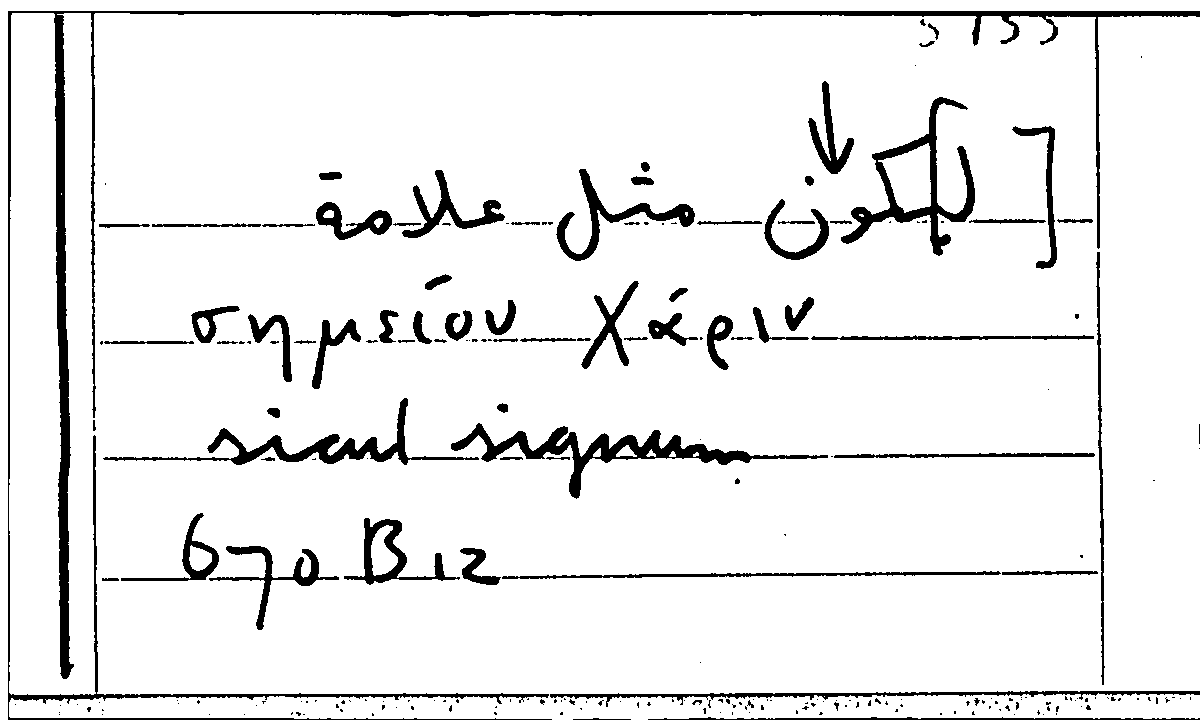 [لتكون مثل علامة
σημείου χάριν
sicut signum
670 B 12